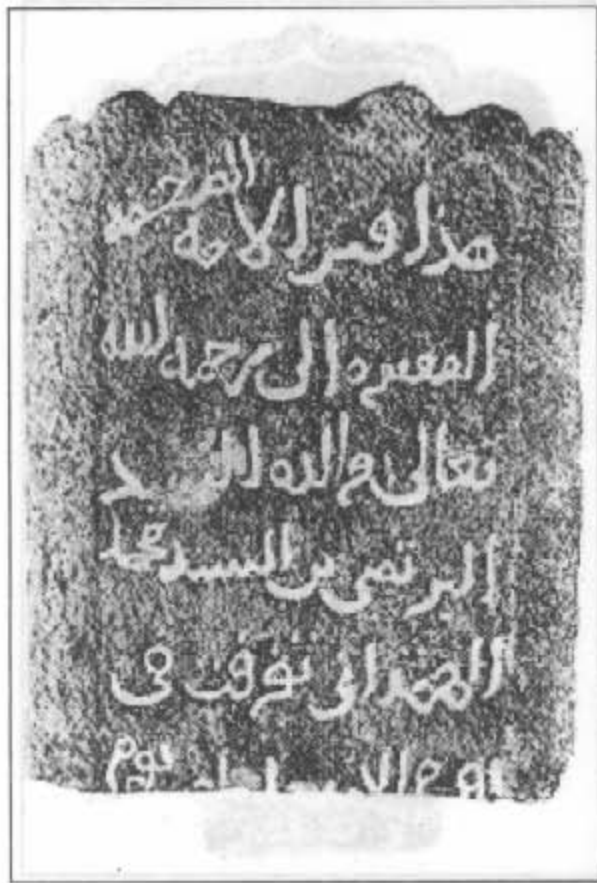 هذا قبر الامه
الفقيره الى رحمه الله
تعالى والده السيد
المرتضى بن السيد محمد
الهمدانى توفت فى
يوم يوم